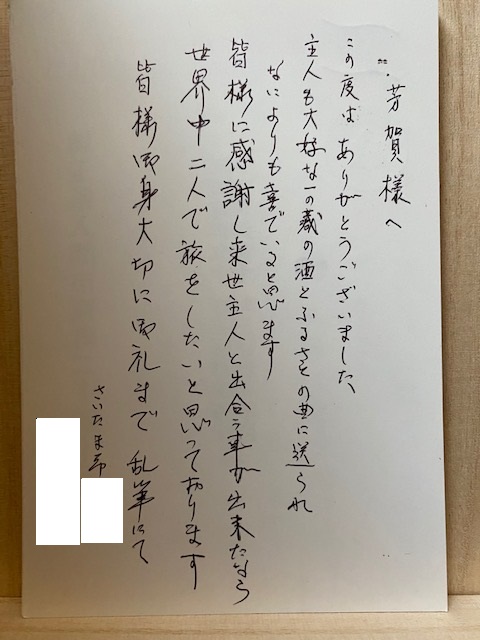 芳賀様へ
この度はありがとうございました、
主人も大好な一の蔵の酒とふるさとの曲に送られ
なによりも喜でいると思ます
皆様に感謝し来世主人と出合う事が出来たなら
世界中二人で旅をしたいと思っております
皆様御身大切に御礼まで 乱筆にて
さいたま市